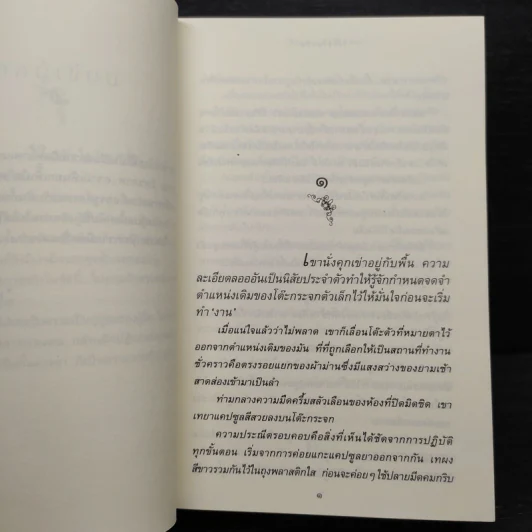 ๑
เขานั่งคุกเข่าอยู่กับพื้น ความ
ละเอียดลอออันเป็นนิสัยประจำตัวทำให้รู้จักกำหนดจดจำ
ตำแหน่งเดิมของโต๊ะกระจกตัวเล็กไว้ให้มั่นใจก่อนจะเริ่ม
ทำ ‘งาน’
เมื่อแน่ใจแล้วว่าไม่พลาด เขาก็เลื่อนโต๊ะตัวที่หมายตาไว้
ออกจากตำแหน่งเดิมของมัน ที่ที่ถูกเลือกให้เป็นสถานที่ทำงาน
ชั่วคราวคือตรงรอยแยกของผ้าม่านซึ่งมีแสงสว่างของยามเช้า
สาดส่องเข้ามาเป็นลำ
ท่ามกลางความมืดครึ้มสลัวเลือนของห้องที่ปิดมิดชิด เขา
เทยาแคปซูลสีสวยลงบนโต๊ะกระจก
ความประณีตรอบคอบคือสิ่งที่เห็นได้ชัดจากการปฏิบัติ
ทุกขั้นตอน เริ่มจากการค่อยแกะแคปซูลยาออกจากกัน เทผง
สีขาวรวมกันไว้ในถุงพลาสติกใส ก่อนจะค่อยๆ ใช้ปลายมีดคมกริบ